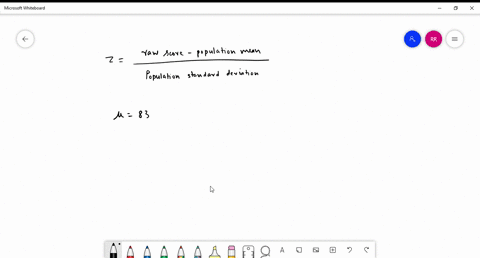 Microsoft Whiteboard
RR
z = raw score - population mean
Population standard deviation
μ = 83